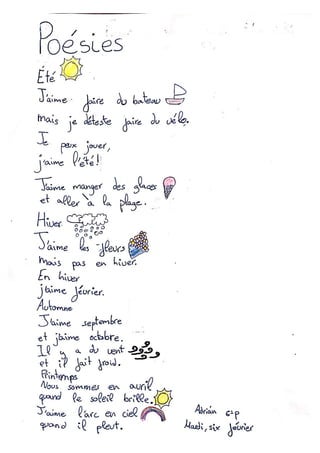 Poésies
Été
J'aime faire du bateau
mais je déteste faire du vélo.
Je peux jouer,
j'aime l'été!
J'aime manger des glaces
et aller à la plage.
Hiver
J'aime les fleurs
mais pas en hiver.
En hiver
j'aime février.
Automne
J'aime septembre
et j'aime octobre.
Il y a du vent
et il fait froid.
Printemps
Nous sommes en avril
quand le soleil brille.
J'aime l'arc en ciel
quand il pleut.
Adrian
Mardi, six février